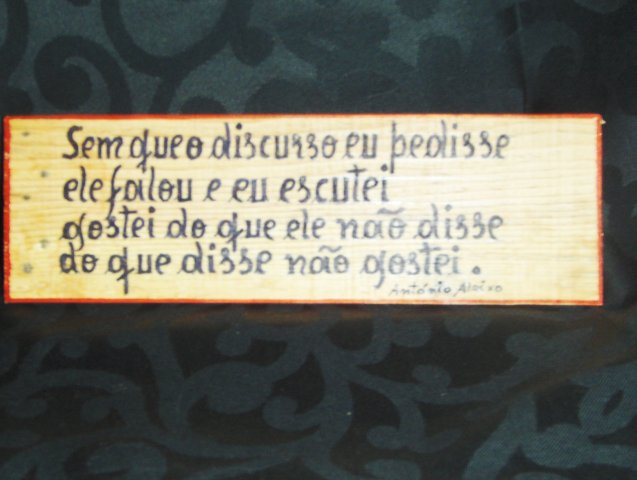 Sem que o discurso eu pedisse
ele falou e eu escutei
gostei do que ele não disse
do que disse não gostei.
António Aleixo